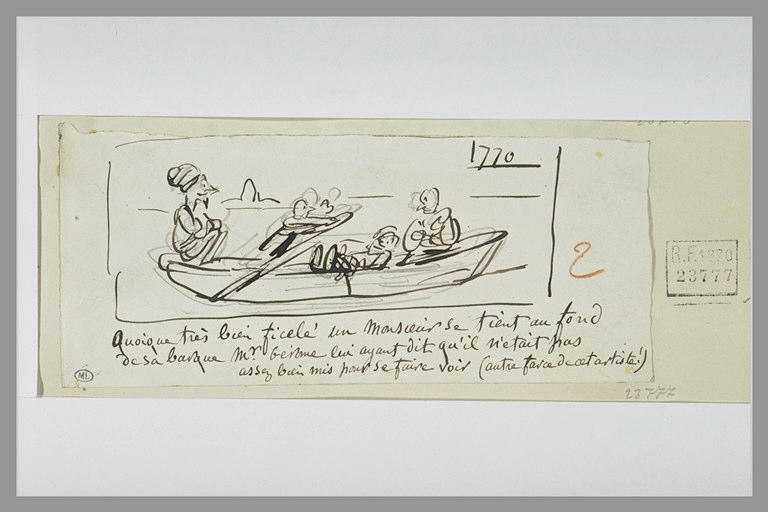 1770
2
R.F. 1870
23777
Quoique très bien ficelé un Monsieur se tient au fond
de sa barque Mr. lui ayant dit qu'il n'était pas
assez bien mis pour se faire voir (autre farce de cet artiste!)
ML
23777